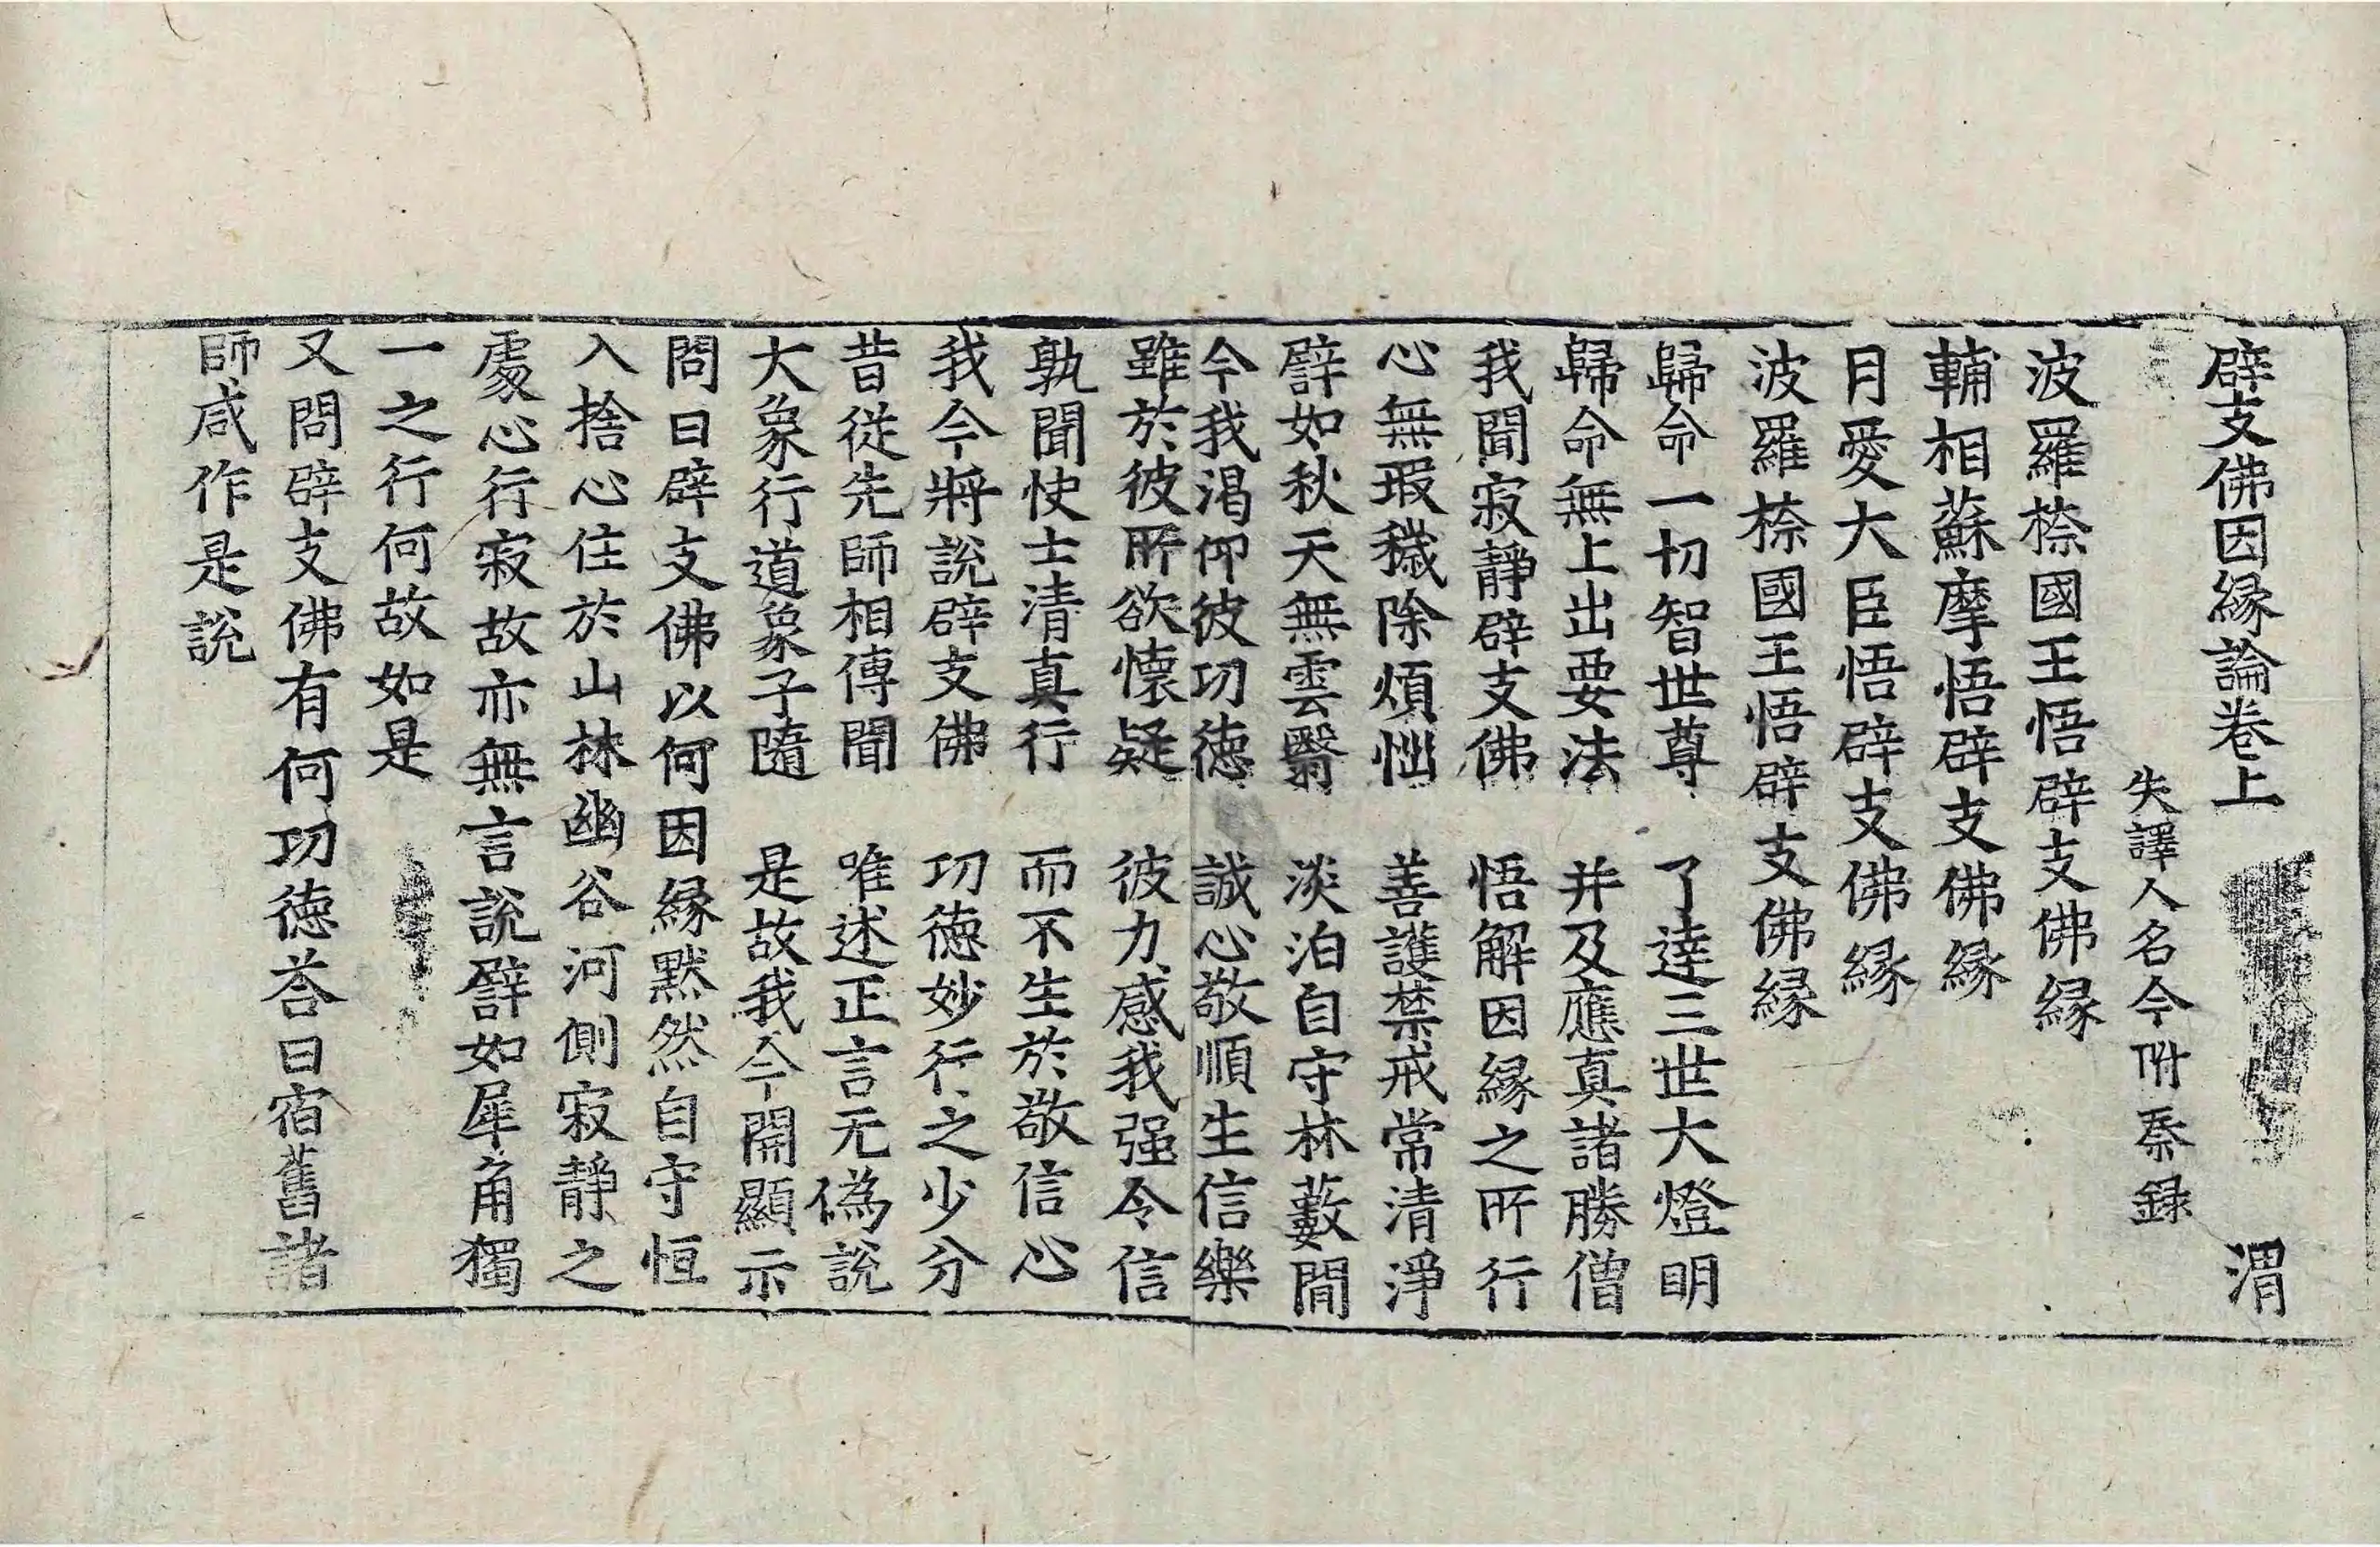 辟支佛因縁論卷上 渭
失譯人名今附秦録
波羅㮈國王悟辟支佛縁
輔相蘇摩悟辟支佛縁
月愛大臣悟辟支佛縁
波羅㮈國王悟辟支佛縁
歸命一切智世尊 了達三世大燈明
歸命無上出要法 并及應真諸勝僧
我聞寂静辟支佛 悟解因縁之所行
心無瑕穢除煩惱 善護禁戒常清淨
譬如秋天無雲翳 淡泊自守林藪間
今我渴仰彼功徳 誠心敬順生信樂
雖於彼所欲懷疑 彼力感我强令信
孰聞快士清真行 而不生於敬信心
我今將說辟支佛 功徳妙行之少分
昔從先師相傳聞 唯述正言无偽說
大象行道象子隨 是故我今開顯示
問曰辟支佛以何因縁默然自守恒
入捨心住於山林幽谷河側寂静之
處心行寂故亦無言說譬如犀角獨
一之行何故如是
又問辟支佛有何功徳荅曰宿舊諸
師咸作是說